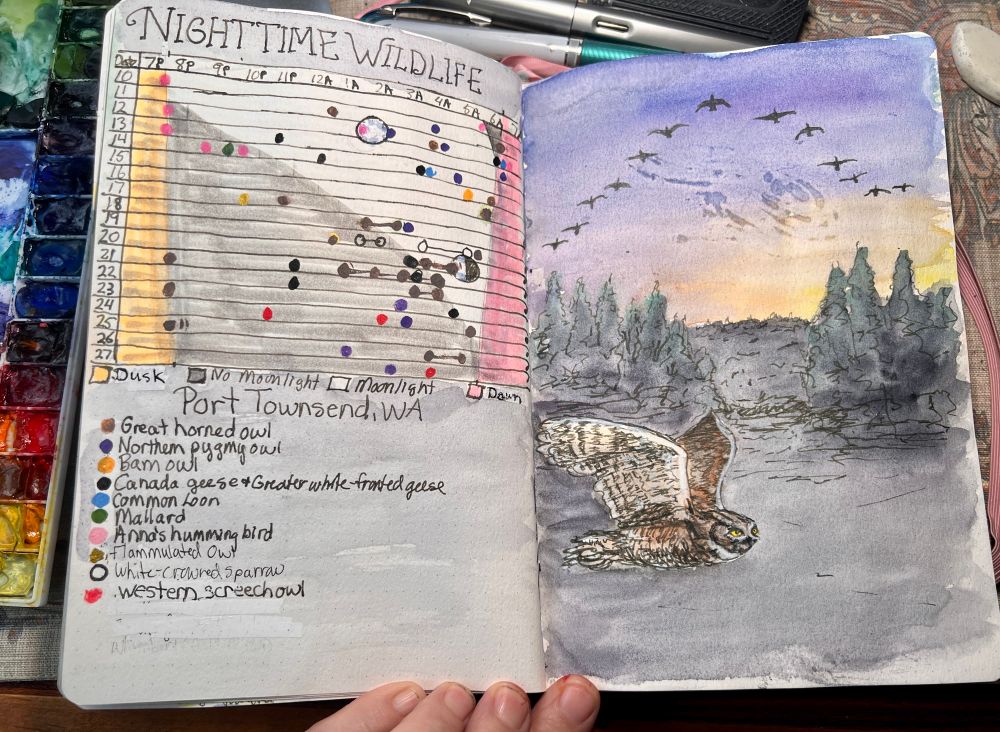 NIGHTTIME WILDLIFE
Date 7P 8P 9P 10P 11P 12A 1A 2A 3A 4A 5A 6A
10
11
12
13
14
15
16
17
18
19
20
21
22
23
24
25
26
27
Dusk No Moonlight Moonlight Dawn
Port Townsend, WA
Great horned owl
Northern pygmy owl
Barn owl
Canada geese + Greater white-fronted geese
Common loon
Mallard
Anna's hummingbird
Flammulated owl
White-crowned sparrow
western screech owl